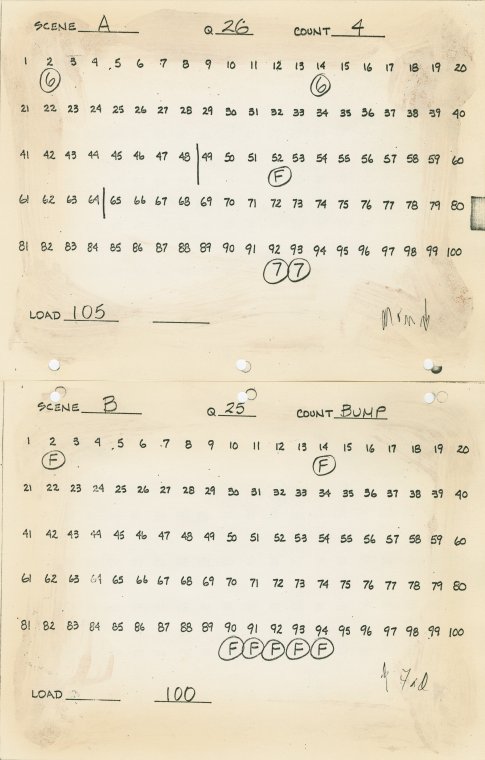 SCENE A Q 26 COUNT 4
1 2 3 4 5 6 7 8 9 10 11 12 13 14 15 16 17 18 19 20
6 6
21 22 23 24 25 26 27 28 29 30 31 32 33 34 35 36 37 38 39 40
41 42 43 44 45 46 47 48 49 50 51 52 53 54 55 56 57 58 59 60
F
61 62 63 64 65 66 67 68 69 70 71 72 73 74 75 76 77 78 79 80
81 82 83 84 85 86 87 88 89 90 91 92 93 94 95 96 97 98 99 100
7 7
LOAD 105
SCENE B Q 25 COUNT BUMP
1 2 3 4 5 6 7 8 9 10 11 12 13 14 15 16 17 18 19 20
F F
21 22 23 24 25 26 27 28 29 30 31 32 33 34 35 36 37 38 39 40
41 42 43 44 45 46 47 48 49 50 51 52 53 54 55 56 57 58 59 60
61 62 63 64 65 66 67 68 69 70 71 72 73 74 75 76 77 78 79 80
81 82 83 84 85 86 87 88 89 90 91 92 93 94 95 96 97 98 99 100
F F F F F
LOAD 100